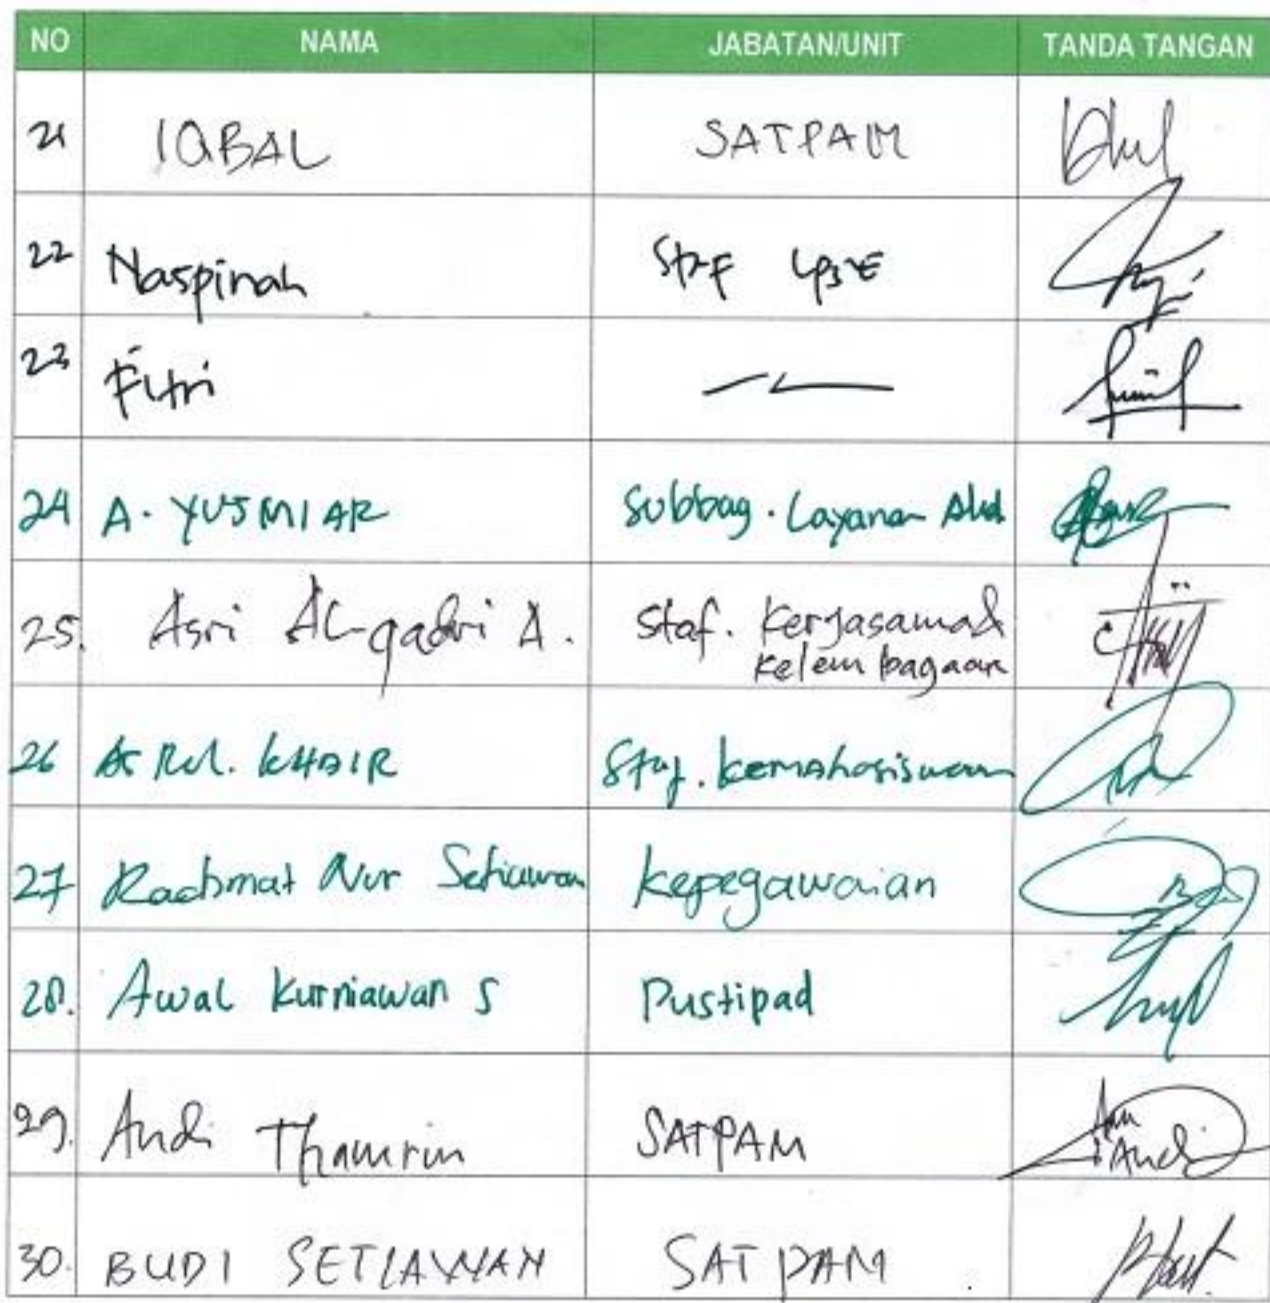 NO NAMA JABATAN/UNIT TANDA TANGAN
21 IQBAL SATPAM
22 Naspinah Staf LPSE
23 Fitri
24 A. YUSMIAR Subbag. Layanan Akd
25. Asri AL-qadri A. Staf. Kerjasama &
Kelembagaan
26 KHAIR Staf. kemahasiswaan
27 Rachmat Nur Setiawan Kepegawaian
28. Awal Kurniawan S Pustipad
29. Andi Thamrin SATPAM
Andi
30. BUDI SETIAWAN SATPAM